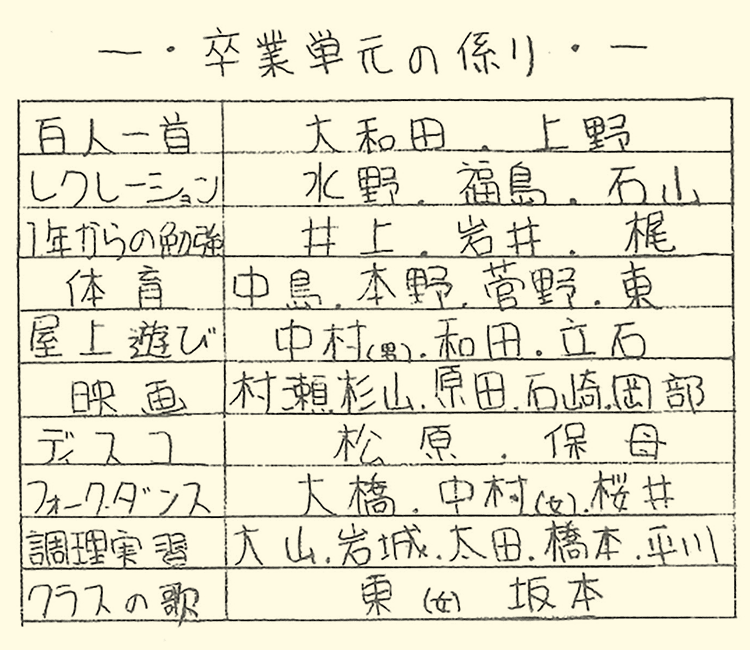 一・卒業単元の係り・一
百人一首 大和田.上野
レクレーション 水野.福島.石山
1年からの勉強 井上.岩井.梶
体育 中島.本野.菅野.東
屋上遊び 中村(男).和田.立石
映画 村瀬杉山.原田.石崎.岡部
ディスコ 松原.保母
フォークダンス 大橋.中村(女).桜井
調理実習 大山.岩城.太田.橋本.平川
クラスの歌 東(女) 坂本